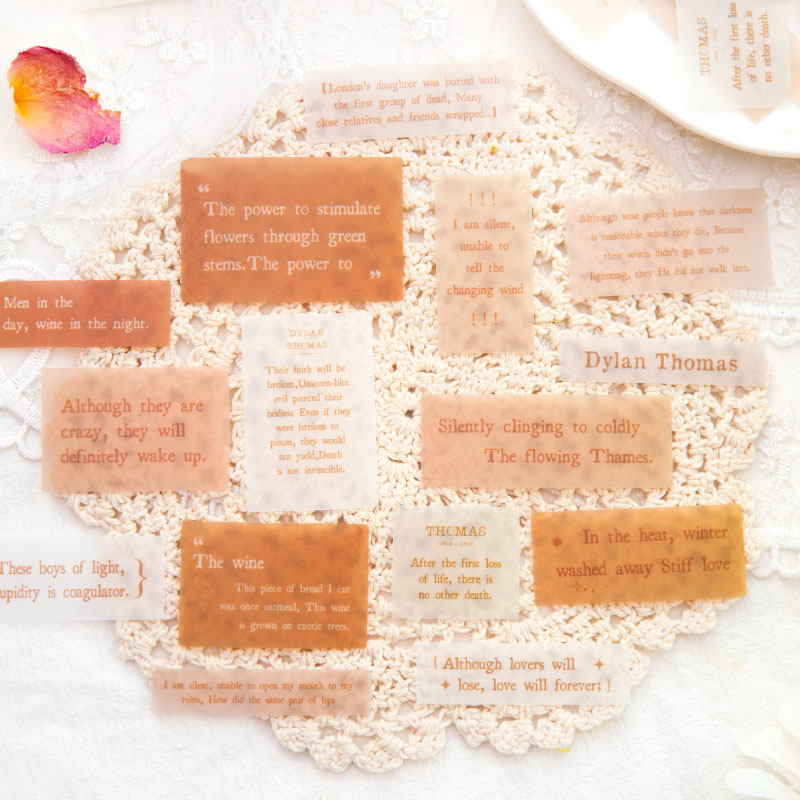 THOMAS
After the first loss
of life, there is
no other death.
[London's daughter was buried with
the first group of dead, Many
close relatives and friends wrapped..]
“
The power to stimulate
flowers through green
stems.The power to
”
! ! !
I am silent,
unable to
tell the
changing wind
! ! !
Although wise people know that darkness
is reasonable when they die, Because
their words didn't go into the
lightning, they He did not walk into.
Men in the
day, wine in the night.
DYLAN
THOMAS
Their faith will be
broken,Unicorn-like
evil pierced their
bodies; Even if they
were broken to
pieces, they would
not yield,Death
is not invincible.
Dylan Thomas
Although they are
crazy, they will
definitely wake up.
Silently clinging to coldly
The flowing Thames.
These boys of light,
upidity is coagulator. }
“
The wine
This piece of bread I cut
was once oatmeal, This wine
is grown on exotic trees.
THOMAS
After the first loss
of life, there is
no other death.
In the heat, winter
washed away Stiff love
I am silent, unable to open my mouth to my
veins, How did the same pair of lips
[ Although lovers will
lose, love will forever; ]